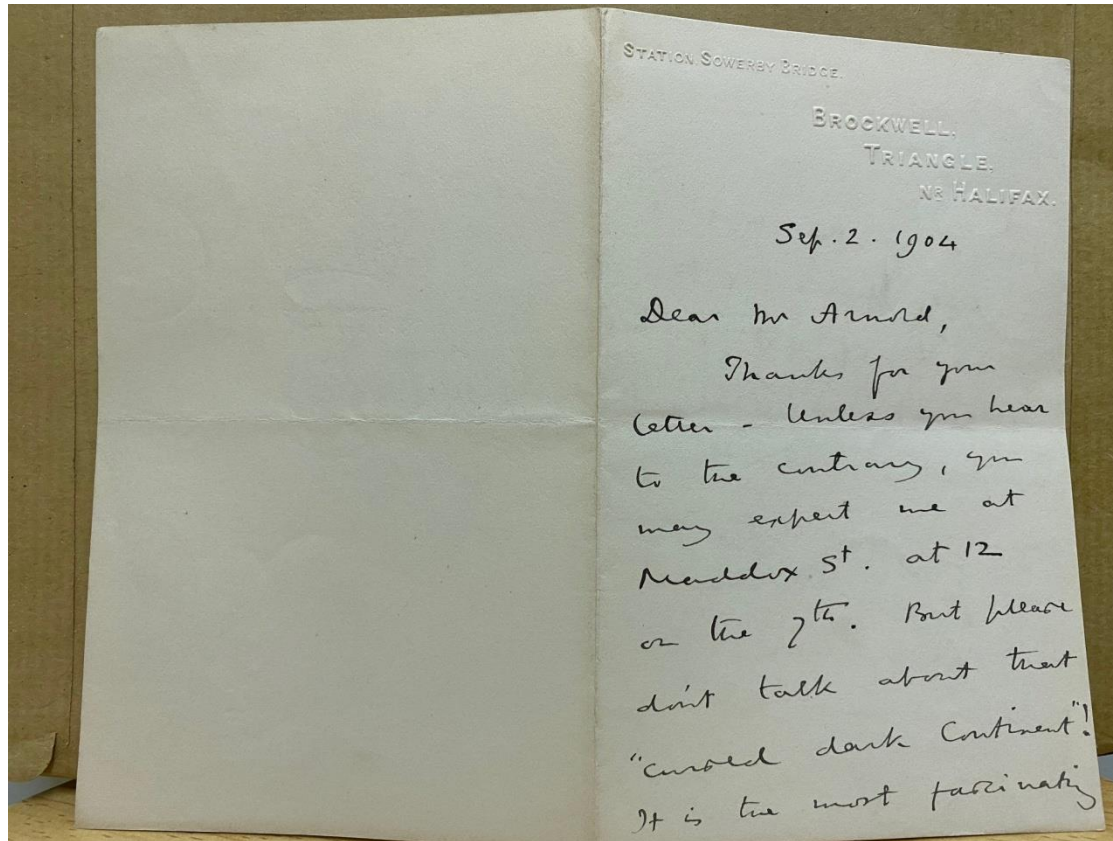 STATION SOWERBY BRIDGE.
BROCKWELL.
TRIANGLE.
NR HALIFAX.
Sep. 2. 1904
Dear Mr Arnold,
Thanks for your
letter - Unless you hear
to the contrary, you
may expect me at
Maddox St. at 12
on the 7th. But please
don't talk about that
"cursed dark Continent"!
It is the most fascinating